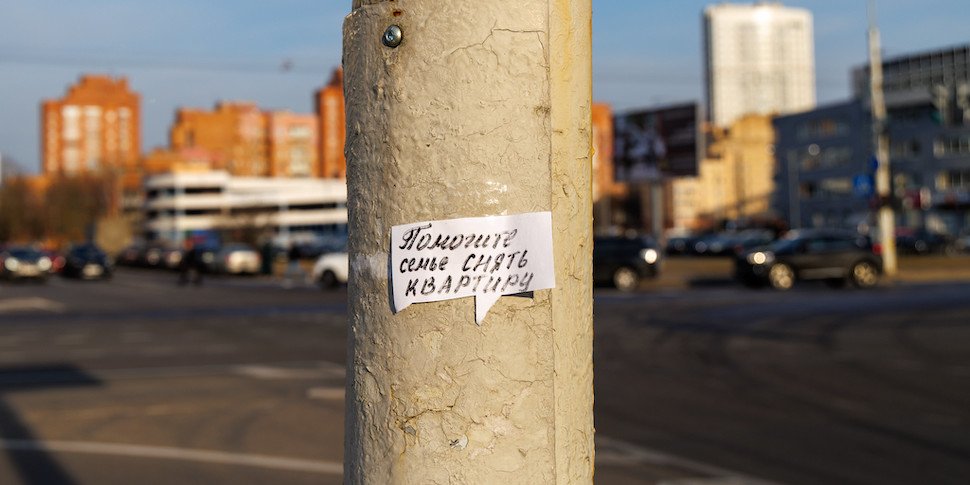 Помогите
семье СНЯТЬ
КВАРТИРУ